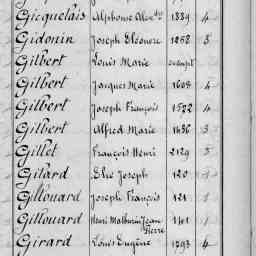 Gicquelais Alphonse Alexdre 1889 4
Gidonin Joseph Eléonore 1252 3
Gilbert Louis Marie exempt
Gilbert Jacques Marie 1608 4
Gilbert Joseph François 1522 4
Gilbert Alfred Marie 1636 3
Gillet François Henri 2129 5
Gilard Elie Joseph 120 1
Gillouard Joseph François 121 1
Gillouard Henri Mathurin Jean Pierre 1101 1
Girard Louis Eugène 1793 4